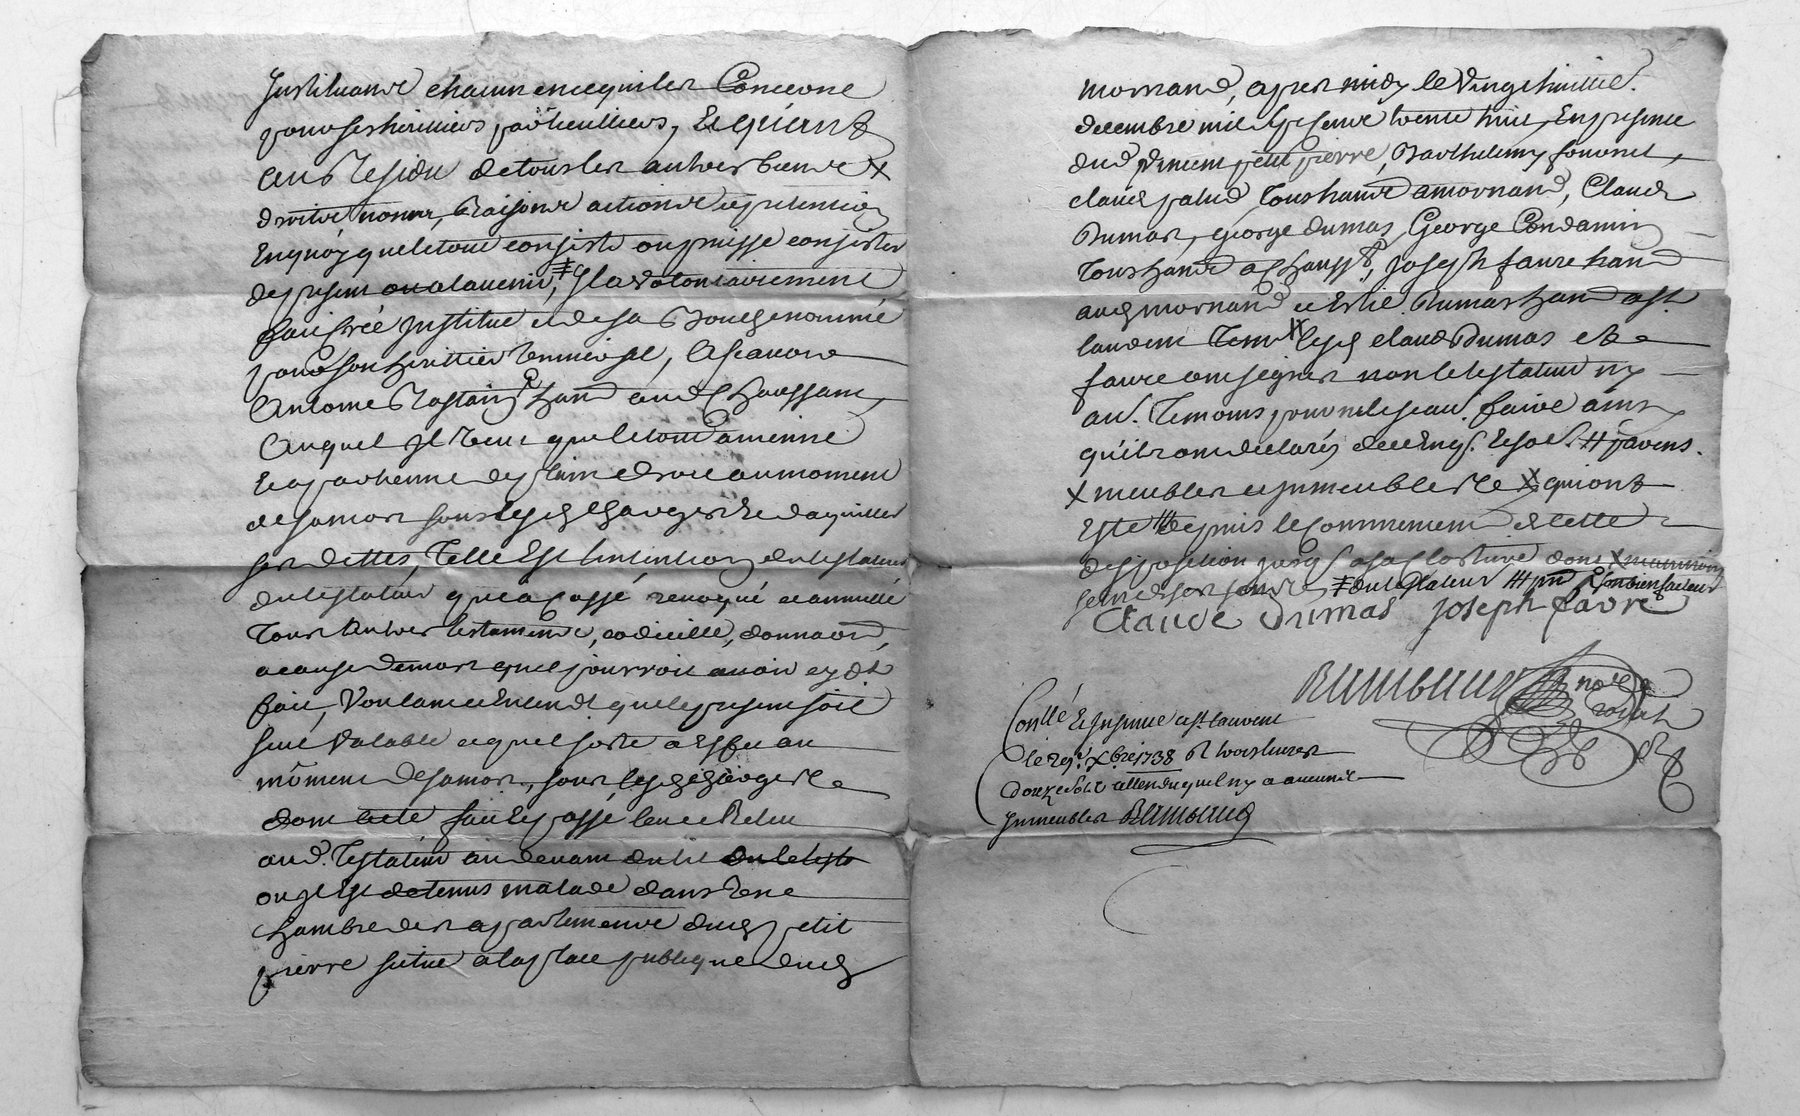 Instituant chacun en ce qui les Concerne
pour ses heritiers particulliers, Et quant
au Residu de tous les autres biens X
droits noms, Raisons actions et pretentions
En quoy que le tout consiste ou puisse consister
de present ou a lavenir, ‡ Il a volontairement
fait créé Institué et de sa Bouche nommé
pour son herittier universel, a scavoir
Antoine Rostaing hant aud Chaussant,
Auquel Il veut que le tout avienne
Et apartienne de plain droit au moment
de sa mort sous les charges de daquitter
ses dettes, Telle Est lintention du testateur
du testateur que a cassé revoqué et annullé
Tous Autres testaments, codicille, donnaons,
a cause de mort quil pourroit avoir cy dt
fait, Voulant et Entendt que le present soit
seul valable et quil sorte a Effet au
moment de sa mort, sous les charges
dont acte fait et passé leu et Relu
aud. Testateur au devant du lit du le testa
ou Il Est detenus malade dans une
Chambre des apartements dud petit
pierre situé a la place publique dud
mornand, apres midy le vingt huitie.
decembre mil sept cent trente huit, En presence
dud petit pierre, Barthelemy
claude palud tous hants a mornand, Claude
Dumas, george dumas, George Condamin
tous hants a Chausst, Joseph favre hant
aud mornand et Dumas hant a st
laurent Tem lesqls claude Dumas et
favre ont signés non le testateur ny
aud. Temoins pour ne le scavoir faire ainsy
quils ont declarés de ce Enqs. Et so # pavens.
X meubles et Immeubles X qui ont
Esté depuis le Commencement de cette
disposition jusqs a sa Closture dont X
‡ du testateur
Claude Dumas Joseph favre
nore
Royal
Conllé Et Insinué a st laurent
le 29e. Xbre 1738 R trois livres
douze sols attendu quil ny a aucuns
Immeubles